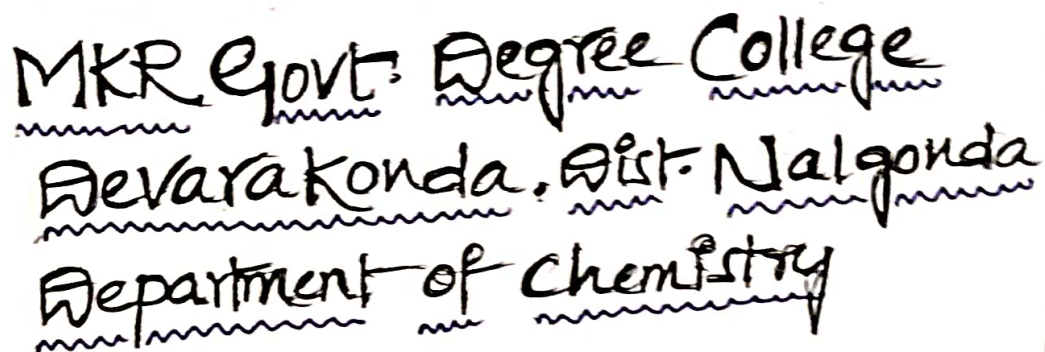 MKR Govt. Degree College
Devarakonda. Dist. Nalgonda
Department of chemistry